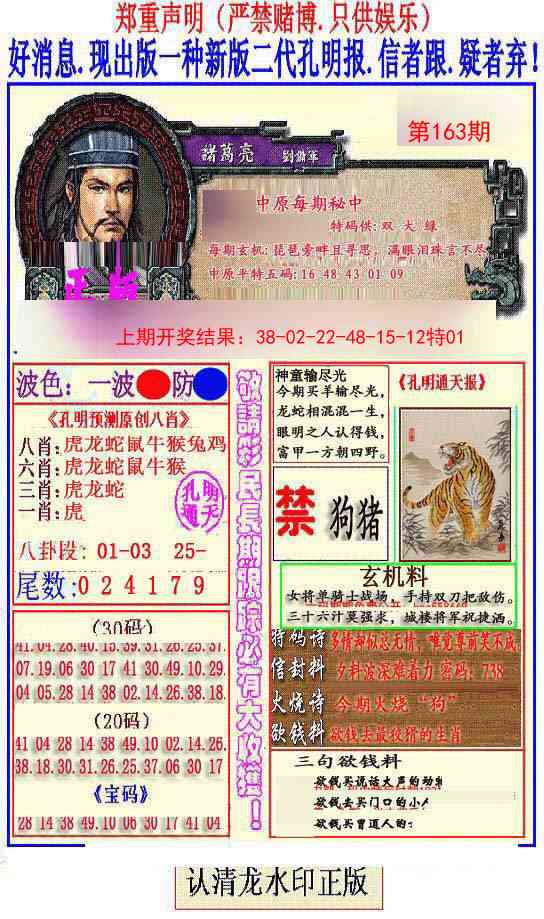 郑重声明（严禁赌博.只供娱乐）
好消息.现出版一种新版二代孔明报.信者跟.疑者弃!
第163期
諸葛亮 劉備軍
中原每期秘中
特码供:双 大 緑
每期玄机:琵琶旁畔且寻思，满眼泪珠言不尽
中原平特五码:16 48 43 01 09
正版
上期开奖结果：38-02-22-48-15-12特01
波色：一波 防
《孔明预测原创八肖》
八肖:虎龙蛇鼠牛猴兔鸡
六肖:虎龙蛇鼠牛猴
三肖:虎龙蛇
一肖:虎
孔明
通天
八卦段：01-03 25-
尾数:0 2 4 1 7 9
(30码)
41.04.28.40.15.39.31.26.25.37
07.19.06 30 17 41 30.49.10.29
04 05.28 14 38 02.14.26.38.18
(20码)
41 04 28 14 38 49.10 02.14.26.
38.18.30.31.26.25.37.06 30 17
《宝码》
28 14 38 49.10 06 30 17 41 04
敬請彩民長期跟踪必有大收獲！
神童输尽光
今期买羊输尽光，
龙蛇相混混一生，
眼明之人认得钱，
富甲一方朝四野。
《孔明通天报》
禁 狗猪
玄机料
女将单骑士战场，手持双刀把敌伤。
三十六计莫强求，城楼将军祝捷酒。
特码诗 多情神似总无情，唯觉尊前笑不成
信封料 夕料波深难着力 密码：738
火烧诗 今期火烧“狗”
欲钱料 欲钱去最狡猾的生肖
三句欲钱料
欲钱买说话大声的动物
欲钱去买门口的小人
欲钱买曾道人的
认清龙水印正版